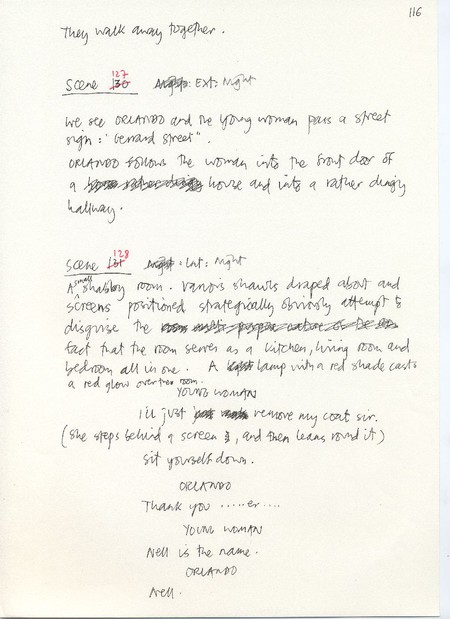 116
They walk away together.
127
Scene 130 Night: EXT: Night
We see ORLANDO and the young woman pass a street
sign: "Gerrard Street".
ORLANDO follows the woman into the front door of
a house and into a rather dingy
hallway.
128
Scene 131 Night: Int: Night
A small shabby room. Various shawls draped about and
screens positioned strategically obviously attempt to
disguise the
fact that the room serves as a kitchen, living room and
bedroom all in one. A lamp with a red shade casts
a red glow over the room.
YOUNG WOMAN
I'll just remove my coat sir.
(She steps behind a screen, and then leans round it)
Sit yourself down.
ORLANDO
Thank you ..... er ....
YOUNG WOMAN
Nell is the name.
ORLANDO
Nell.